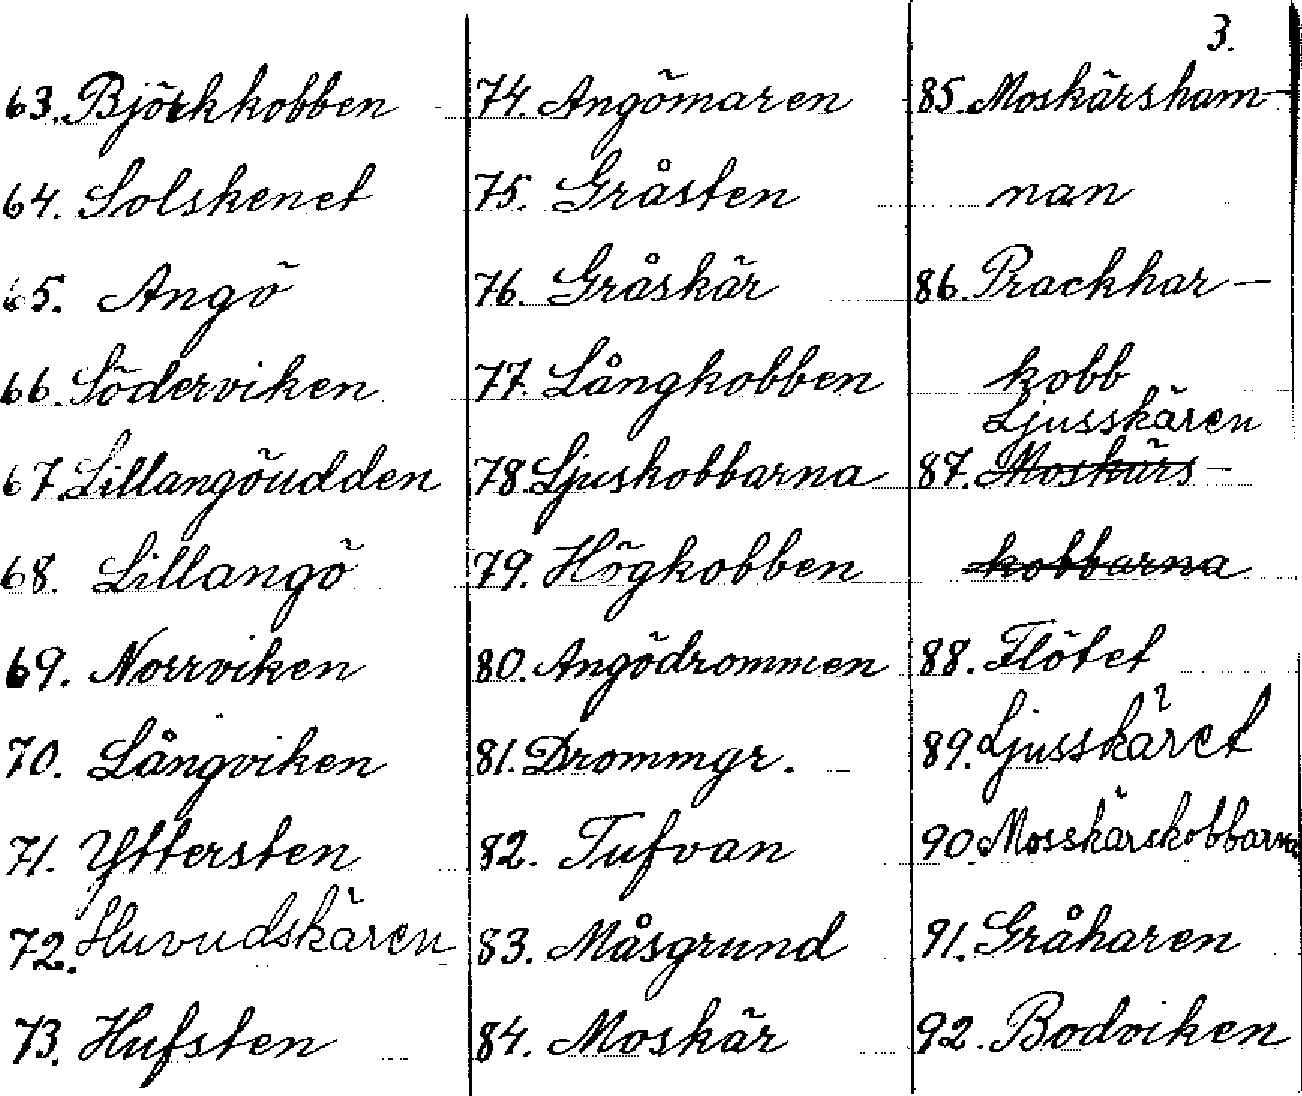 3.
63. Björkkobben
64. Solskenet
65. Angö
66. Söderviken
67. Lillangöudden
68. Lillangö
69. Norrviken
70. Långviken
71. Yttersten
72. Huvudskären
73. Hufsten
74. Angömaren
75. Gråsten
76. Gråskär
77. Långkobben
78. Ljuskobbarna
79. Högkobben
80. Angödrommen
81. Drommgr.
82. Tufvan
83. Måsgrund
84. Moskär
85. Moskärsham-
nan
86. Prackhar-
kobb
Ljusskären
87. Moskärs-
kobbarna
88. Flötet
89. Ljusskäret
90. Mosskärskobbarna
91. Gråharen
92. Bodviken